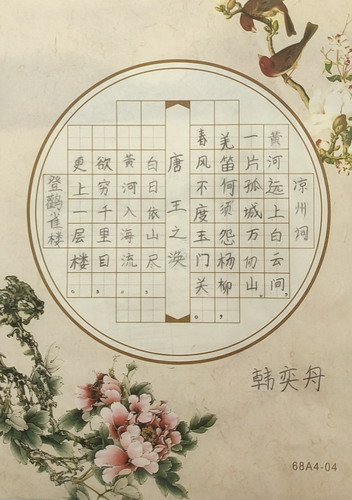 凉州词
黄河远上白云间,
一片孤城万仞山。
羌笛何须怨杨柳,
春风不度玉门关。
唐 王之涣
白日依山尽,
黄河入海流。
欲穷千里目,
更上一层楼。
登鹳雀楼
韩奕丹
68A4-04